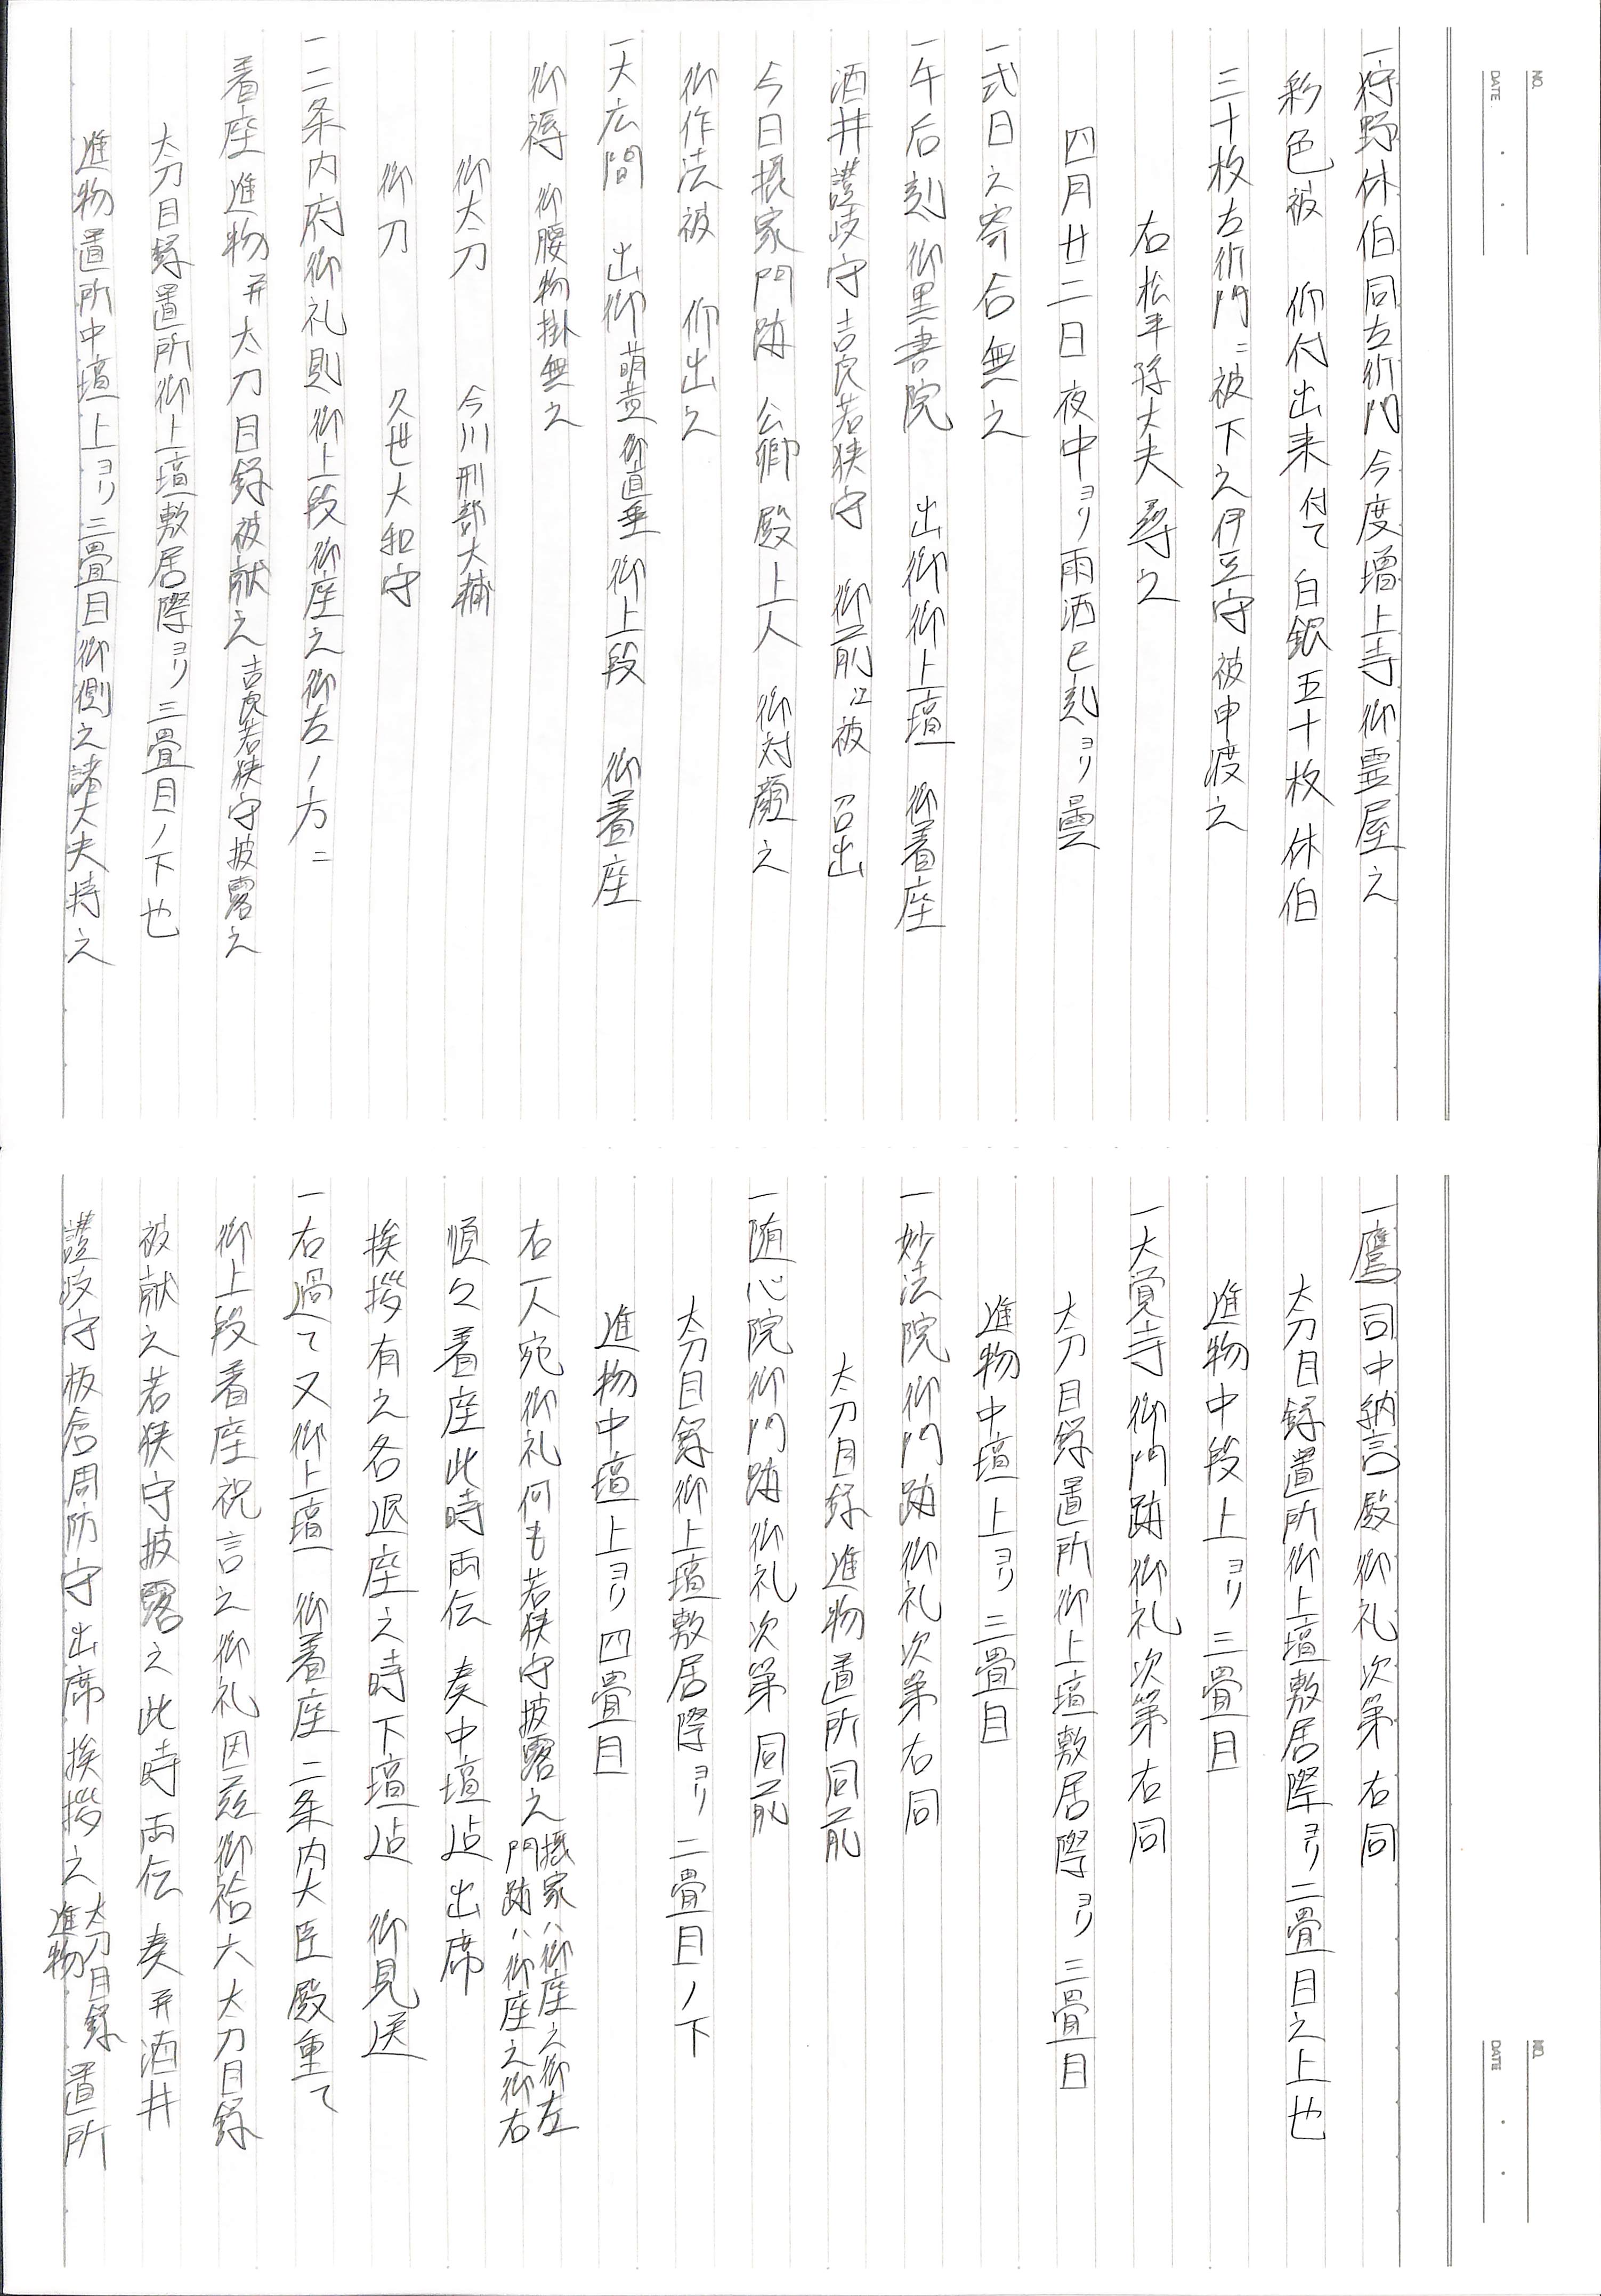 NO.
DATE
一狩野休伯同左衛門今度増上寺御霊屋之
彩色被 仰付出来付て白銀五十枚休伯
三十枚左衛門ニ被下之伊豆守被申渡之
右松平隼大夫尋之
四月廿二日夜中ヨリ雨洒巳刻ヨリ曇
一式日之寄合無之
一午后刻御黒書院 出御御上壇 御着座
酒井讃岐守吉良若狭守 御前江被 召出
今日摂家門跡 公卿殿上人 御対顔之
御作法被 仰出之
一大広間 出御萌黄御直垂御上段 御着座
御褥 御腰物掛無之
御太刀 今川刑部大輔
御刀 久世大和守
一二条内府御礼則御上段御座之御左ノ方ニ
着座進物并太刀目録被献之吉良若狭守披露之
太刀目録置所御上壇敷居際ヨリ三畳目ノ下也
進物置所中壇上ヨリ三畳目御側之諸大夫持之
NO.
DATE
一鷹司中納言殿御礼次第右同
太刀目録置所御上壇敷居際ヨリ二畳目之上也
進物中段上ヨリ三畳目
一大覚寺御門跡御礼次第右同
太刀目録置所御上壇敷居際ヨリ三畳目
進物中壇上ヨリ三畳目
一妙法院御門跡御礼次第右同
太刀目録進物置所同前
一随心院御門跡御礼次第同前
太刀目録御上壇敷居際ヨリ二畳目ノ下
進物中壇上ヨリ四畳目
右一人宛御礼何も若狭守披露之摂家ハ御座之御左
門跡ハ御座之御右
順々着座此時両伝 奏中壇迠出席
挨拶有之各退座之時下壇迠 御見送
一右過て又御上壇 御着座二条内大臣殿重て
御上段着座祝言之御礼因茲御袷六太刀目録
被献之若狭守披露之此時両伝 奏并酒井
讃岐守板倉周防守出席挨拶之太刀目録
進物 置所